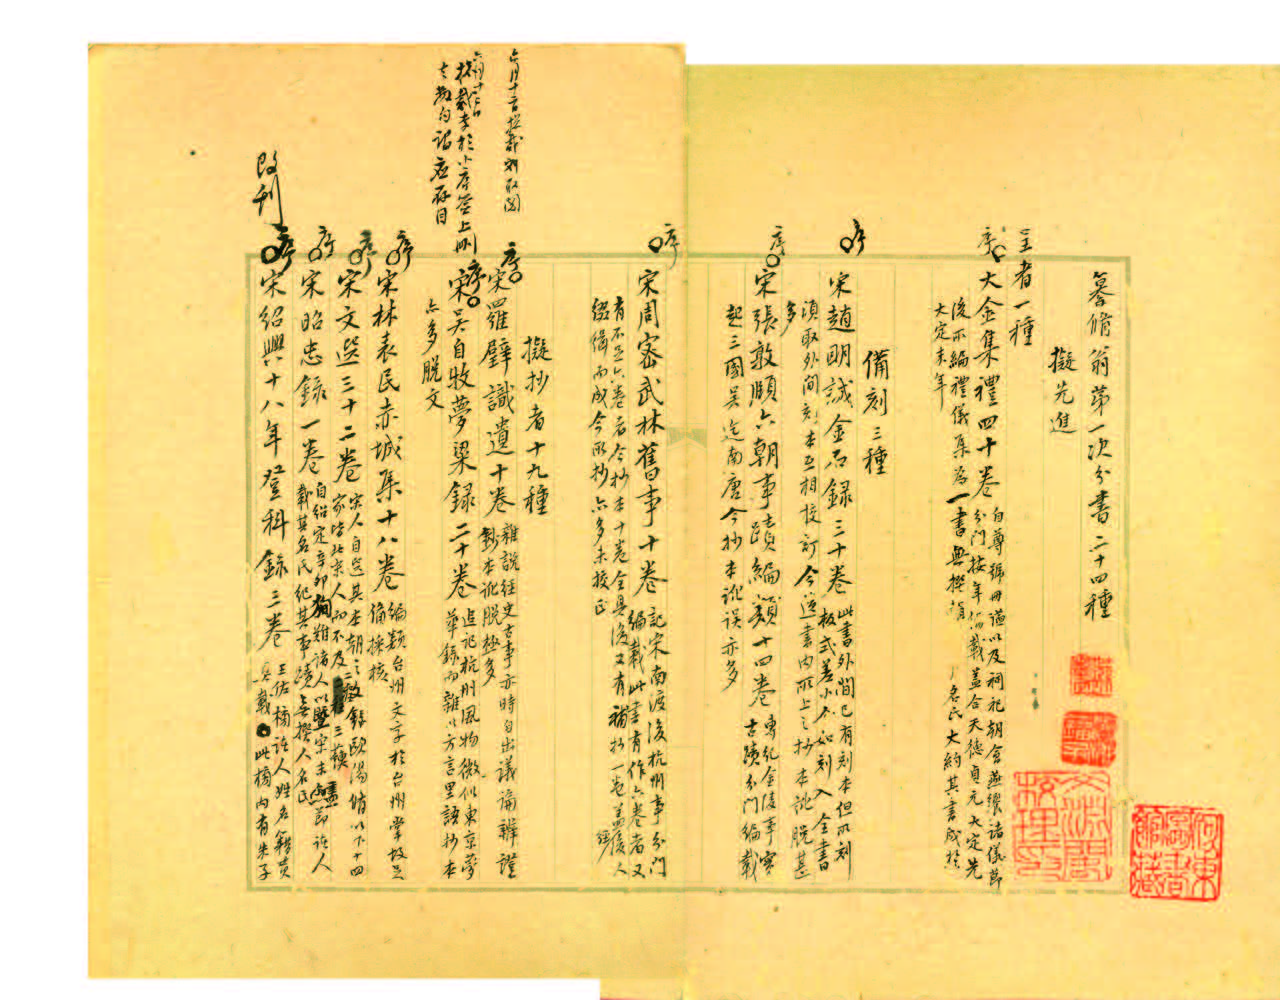 纂脩翁第一次分書二十四種
擬先進
呈者一種
序
大金集禮四十卷 自尊號冊謚以及祠祀朝會燕饗諸儀節
分門按年編載蓋合天德貞元大定先
後所編禮儀集為一書無撰 名氏大約其書成於
大定末年
備刻三種
序
宋趙明誠金石錄三十卷 此書外間已有刻本但所刻
板式差小不如刻入全書
須取外間刻本互相校訂今送書內所上之抄本訛脫甚
多
序
宋張敦頤六朝事蹟編類十四卷 專紀金陵事實
古蹟分門編載
起三國吳迄南唐今抄本訛誤亦多
序
宋周密武林舊事十卷 記宋南渡後杭州事分門
編載此書有作六卷者又
有不足六卷者今抄本十卷全具後又有補抄一卷蓋後人
綴緝而成今所抄亦多未校正
擬抄者十九種
六月十 日擬 刪
序
宋羅璧識遺十卷 雜說經史古事亦時自出議論辨證
鈔本訛脫極多
序
宋吳自牧夢粱錄二十卷 追記杭州風物微似東京夢
華錄而雜以方言里語抄本
亦多脫文
應存目
序
宋林表民赤城集十八卷 編類台州文字於台州掌故足
備採核
序
宋文選三十二卷 宋人自選其本朝之文 錄歐陽脩以下十四
家皆北宋人而不及三蘇
序
宋昭忠錄一卷 自紹定辛卯 難諸人以暨宋末 節諸人
載其名氏紀其事蹟無撰人名氏
改刊
序
宋紹興十八年登科錄三卷 三佐榜諸人姓名籍貫
具載 此榜內有朱子
河東